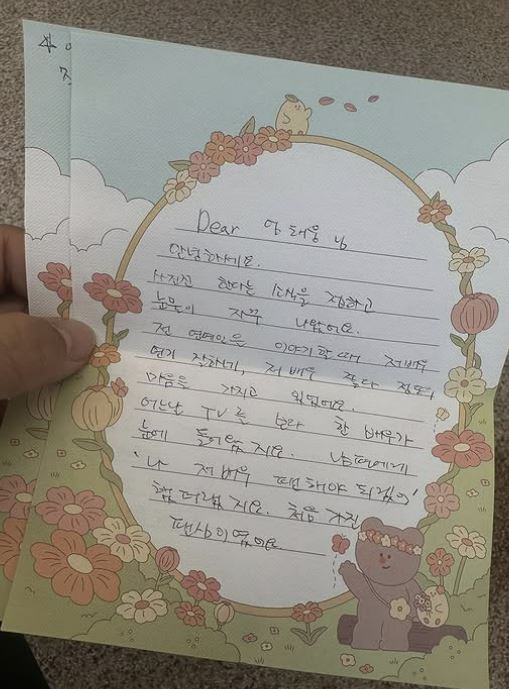 Dear 안해용 님
안녕하세요.
사진전 한다는 소식을 접하고
눈물이 자꾸 나왔어요.
전 연예인을 이야기할 때 저 배우
연기 잘하네, 저 배우 잘한다 정도의
마음을 가지고 있었어요.
어느날 TV를 보다 한 배우가
눈에 들어왔지요. 남편에게
'나 저 배우 팬 해야 되겠어'
했더랬지요. 처음 가진
팬심이였어요